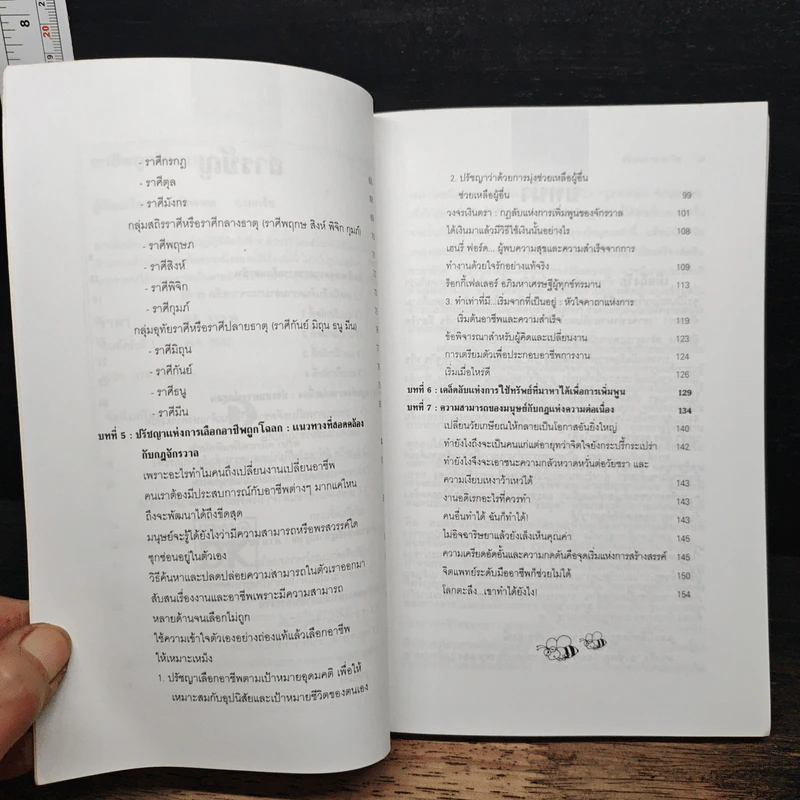 8
20
- ราศีกรกฎ
- ราศีตุล
- ราศีมังกร
กลุ่มสถิรราศีหรือราศีกลางธาตุ (ราศีพฤกษ สิงห์ พิจิก กุมภ์)
- ราศีพฤษภ
- ราศีสิงห์
- ราศีพิจิก
- ราศีกุมภ์
กลุ่มอุทัยราศีหรือราศีปลายธาตุ (ราศีกันย์ มิถุน ธนู มีน)
- ราศีมิถุน
- ราศีกันย์
- ราศีธนู
- ราศีมีน
บทที่ 5 : ปรัชญาแห่งการเลือกอาชีพถูกโฉลก : แนวทางที่สอดคล้อง
กับกฎจักรวาล
เพราะอะไรทำไมคนถึงเปลี่ยนงานเปลี่ยนอาชีพ
คนเราต้องมีประสบการณ์กับอาชีพต่างๆ มากแค่ไหน
ถึงจะพัฒนาได้ถึงขีดสุด
มนุษย์จะรู้ได้ยังไงว่ามีความสามารถหรือพรสวรรค์ใด
ซุกซ่อนอยู่ในตัวเอง
วิธีค้นหาและปลดปล่อยความสามารถในตัวเราออกมา
สับสนเรื่องงานและอาชีพเพราะมีความสามารถ
หลายด้านจนเลือกไม่ถูก
ใช้ความเข้าใจตัวเองอย่างถ่องแท้แล้วเลือกอาชีพ
ให้เหมาะเหม็ง
1. ปรัชญาเลือกอาชีพตามเป้าหมายอุดมคติ เพื่อให้
เหมาะสมกับอุปนิสัยและเป้าหมายชีวิตของตนเอง
2. ปรัชญาว่าด้วยการมุ่งช่วยเหลือผู้อื่น
ช่วยเหลือผู้อื่น 99
วงจรเงินตรา : กฎลับแห่งการเพิ่มพูนของจักรวาล 101
ได้เงินมาแล้วมีวิธีใช้เงินนั้นอย่างไร 108
เฮนรี่ ฟอร์ด... ผู้พบความสุขและความสำเร็จจากการ
ทำงานด้วยใจรักอย่างแท้จริง 109
ร็อกกี้เฟลเลอร์ อภิมหาเศรษฐีผู้ทุกข์ทรมาน 113
3. ทำเท่าที่มี...เริ่มจากที่เป็นอยู่ : หัวใจคาถาแห่งการ
เริ่มต้นอาชีพและความสำเร็จ 119
ข้อพิจารณาสำหรับผู้คิดและเปลี่ยนงาน 123
การเตรียมตัวเพื่อประกอบอาชีพการงาน 124
เริ่มเมื่อไหร่ดี 126
บทที่ 6 : เคล็ดลับแห่งการใช้ทรัพย์ที่มาหาได้เพื่อการเพิ่มพูน 129
บทที่ 7 : ความสามารถของมนุษย์กับกฎแห่งความต่อเนื่อง 134
เปลี่ยนวัยเกษียณให้กลายเป็นโอกาสอันยิ่งใหญ่ 140
ทำยังไงถึงจะเป็นคนแก่แต่อายุทว่าจิตใจยังกระปรี้กระเปร่า 142
ทำยังไงจึงจะเอาชนะความกลัวหวาดหวั่นต่อวัยชรา และ
ความเงียบเหงาว้าเหว่ได้ 143
งานอดิเรกอะไรที่ควรทำ 143
คนอื่นทำได้ ฉันก็ทำได้! 143
ไม่อิจฉาริษยาแล้วยังเล็งเห็นคุณค่า 145
ความเครียดอัดอั้นและความกดดันคือจุดเริ่มแห่งการสร้างสรรค์ 145
จิตแพทย์ระดับมืออาชีพก็ช่วยไม่ได้ 150
โลกตะลึง...เขาทำได้ยังไง! 154